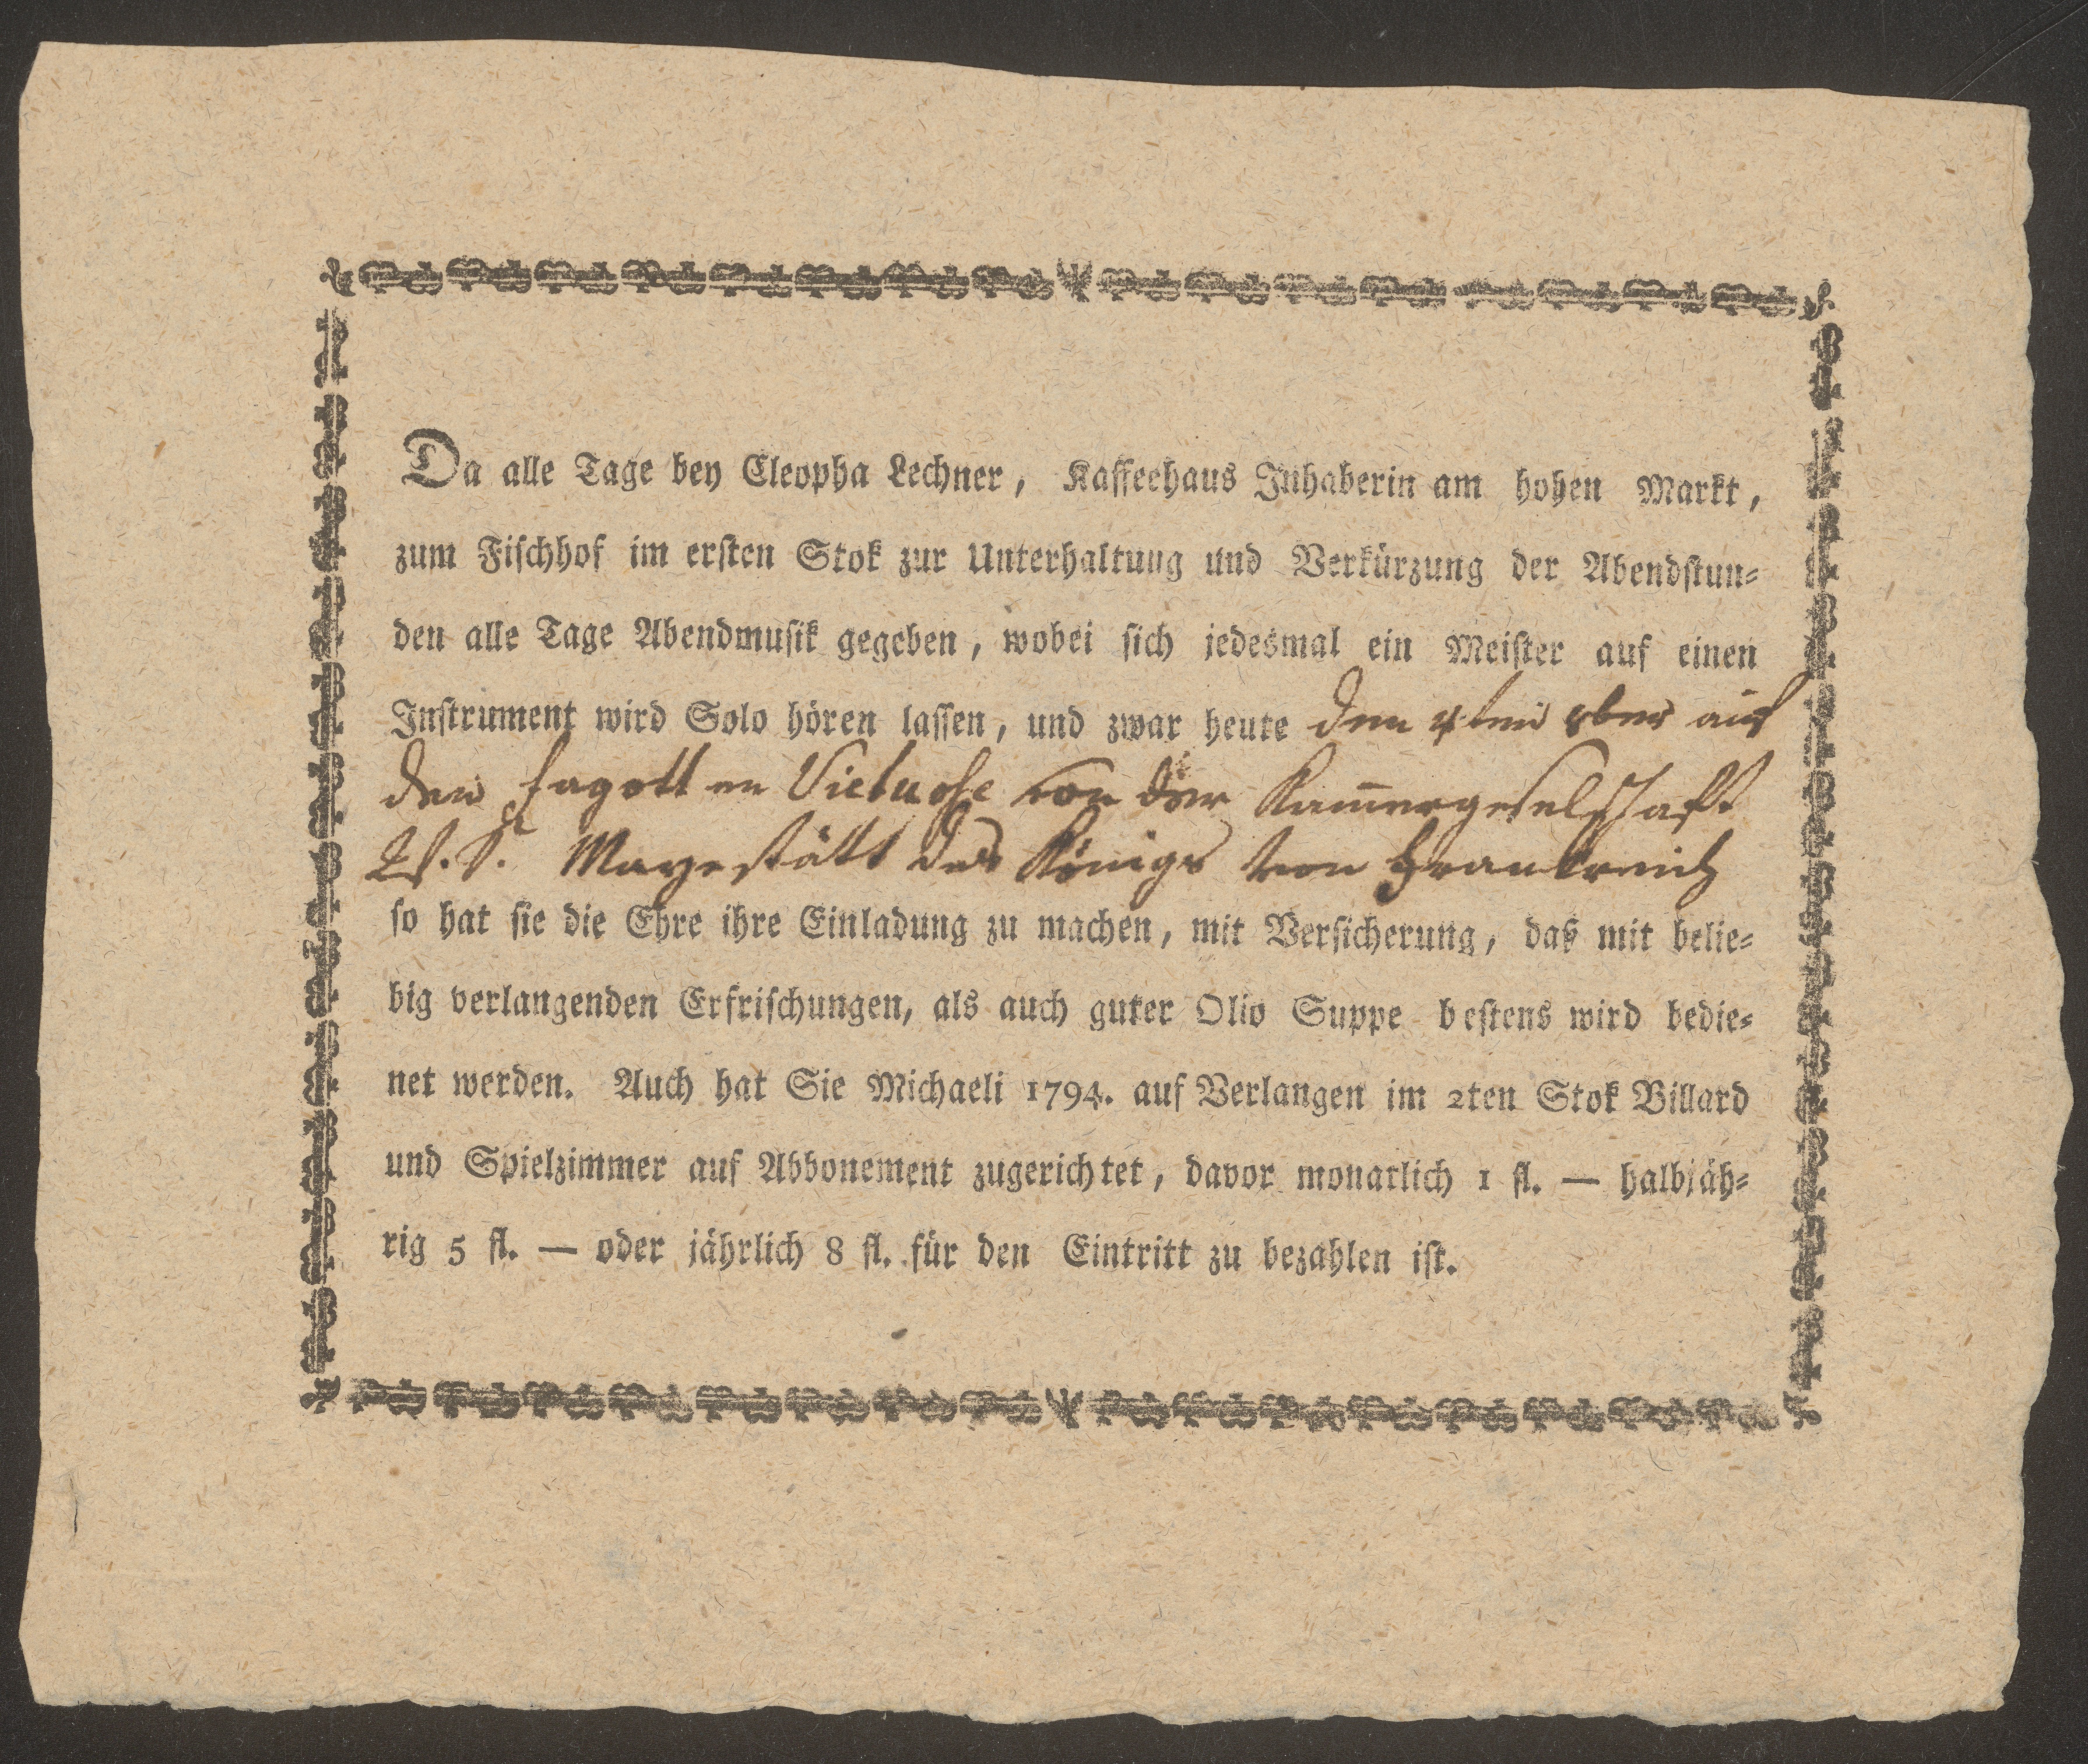 Da alle Tage bey Cleopha Lechner, Kaffeehaus Inhaberin am hohen Markt,
zum Fischhof im ersten Stok zur Unterhaltung und Verkürzung der Abendstun=
den alle Tage Abendmusik gegeben, wobei sich jedesmal ein Meister auf einen
Instrument wird Solo hören lassen, und zwar heute den 4ten 8ber auf
den fagott en Vietuose von der Kam̅ergeselschaft
Mayestätt des Königs von Frankreich
so hat sie die Ehre ihre Einladung zu machen, mit Versicherung, daß mit belie=
big verlangenden Erfrischungen, als auch guter Olio Suppe bestens wird bedie=
net werden. Auch hat Sie Michaeli 1794. auf Verlangen im 2ten Stok Billard
und Spielzimmer auf Abbonement zugerichtet, davor monatlich 1 fl. — halbjäh=
rig 5 fl. — oder jährlich 8 fl. für den Eintritt zu bezahlen ist.